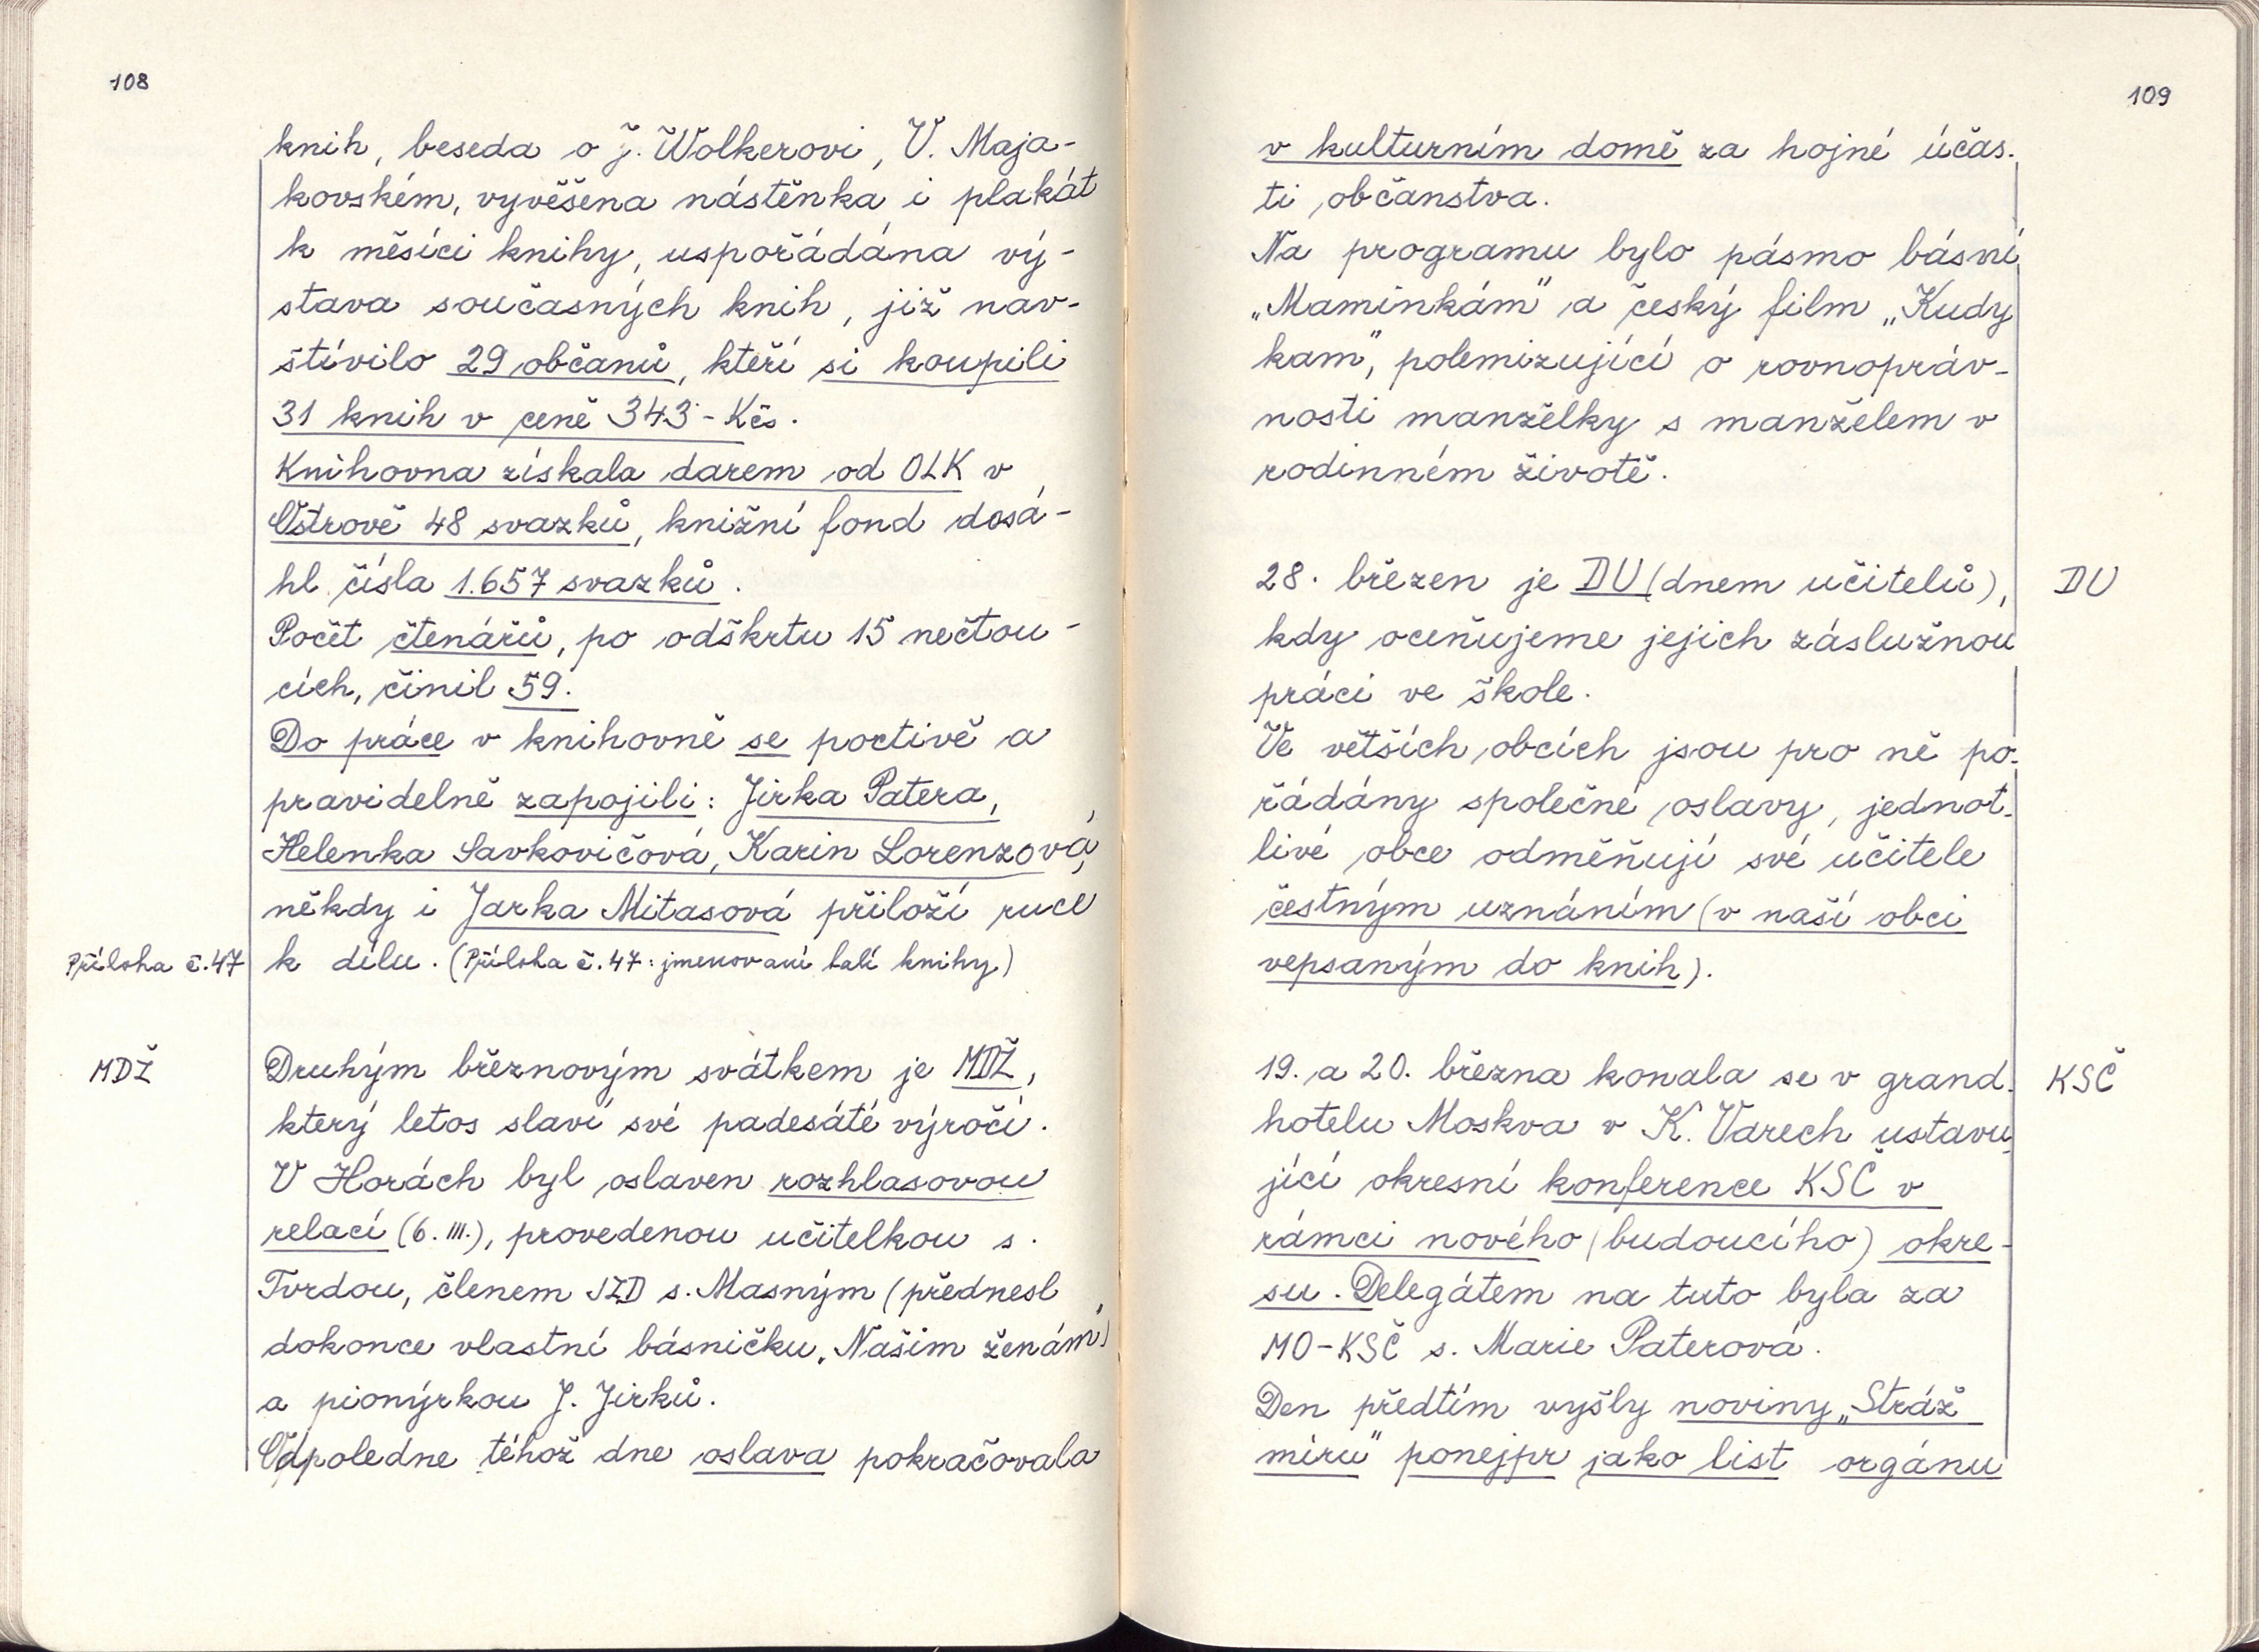 108
knih, beseda o J. Wolkerovi, V. Maja-
kovském, vyvěšena nástěnka i plakát
k měsíci knihy, uspořádána vý-
stava současných knih, již nav-
štívilo 29 občanů, kteří si koupili
31 knih v ceně 343·- Kčs.
Knihovna získala darem od OLK v
Ostrově 48 svazků, knižní fond dosá-
hl čísla 1.657 svazků.
Počet čtenářů, po odškrtu 15 nečtou-
cích, činil 59.
Do práce v knihovně se poctivě a
pravidelně zapojili: Jirka Patera,
Helenka Savkovičová, Karin Lorenzová,
někdy i Jarka Mitasová přiloží ruce
Příloha č.47
k dílu. (Příloha č. 47: jmenovaní balí knihy)
MDŽ
Druhým březnovým svátkem je MDŽ,
který letos slaví své padesáté výročí.
V Horách byl oslaven rozhlasovou
relací (6. III.), provedenou učitelkou s.
Tvrdou, členem JZD s. Masným (přednesl
dokonce vlastní básničku „Našim ženám“)
a pionýrkou J. Jirků.
Odpoledne téhož dne oslava pokračovala
109
v kulturním domě za hojné účas-
ti občanstva.
Na programu bylo pásmo básní
„Maminkám" a český film „Kudy
kam", polemizující o rovnopráv-
nosti manželky s manželem v
rodinném životě.
28. březen je DU (dnem učitelů),
DU
kdy oceňujeme jejich záslužnou
práci ve škole.
Ve větších obcích jsou pro ně po-
řádány společné oslavy, jednot-
livé obce odměňují své učitele
čestným uznáním (v naší obci
vepsaným do knih).
19. a 20. března konala se v grand-
KSČ
hotelu Moskva v K. Varech ustavu-
jící okresní konference KSČ v
rámci nového (budoucího) okre-
su. Delegátem na tuto byla za
MO-KSČ s. Marie Paterová.
Den předtím vyšly noviny „Stráž
míru" ponejpr jako list orgánu